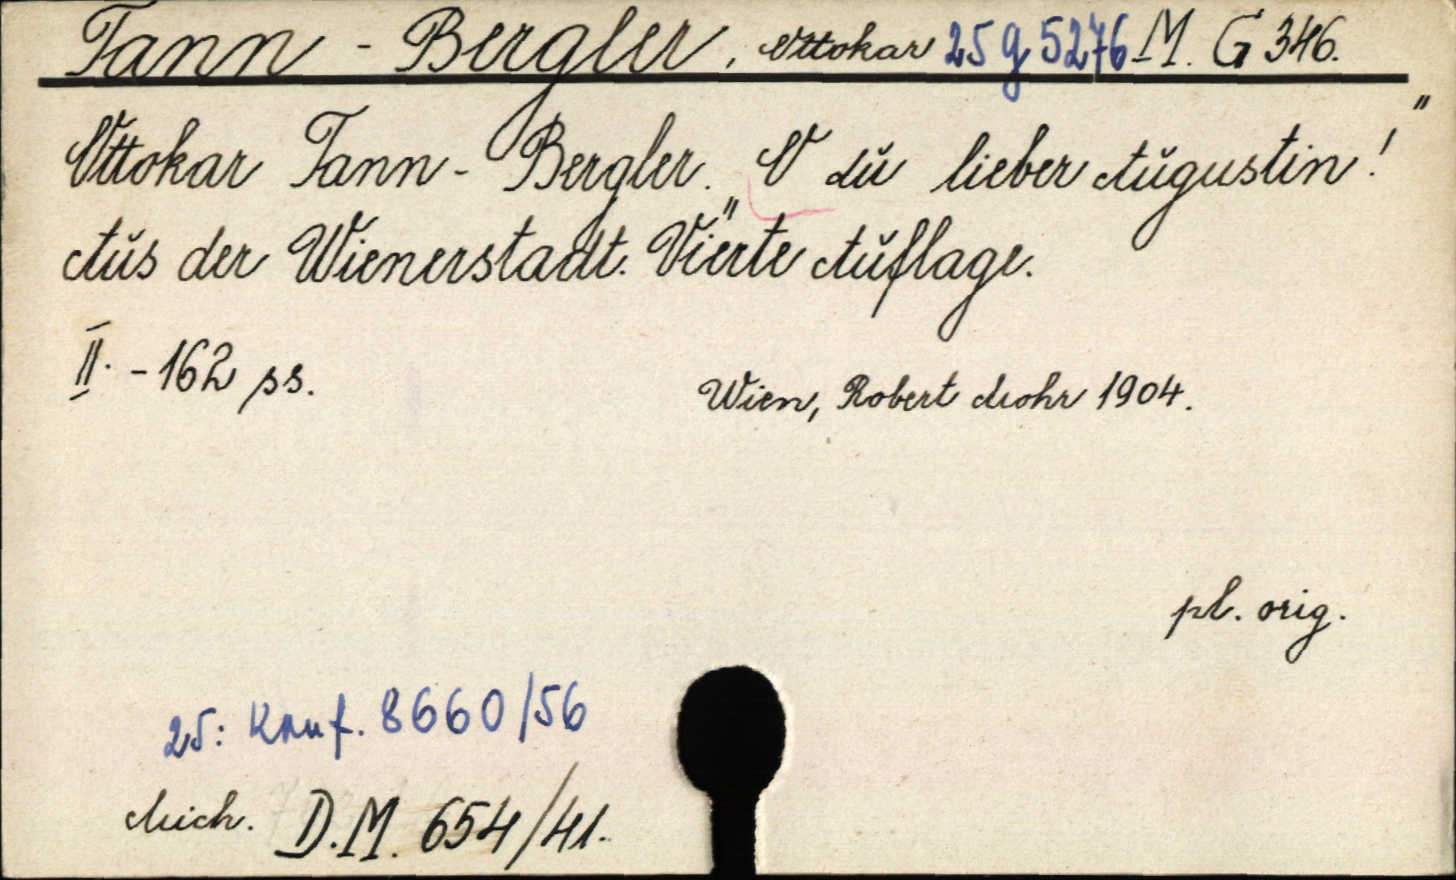 Tann - Bergler, Ottokar 25 g 5276 M. G 346.
Ottokar Tann-Bergler. „O dŭ lieber Aŭgustin!"
Aŭs der Wienerstadt. Vierte Aŭflage.
II. - 162 ss.
Wien, Robert Mohr 1904.
pl. orig.
25: Kauf. 8660/56
Mich. D.M. 654/41.